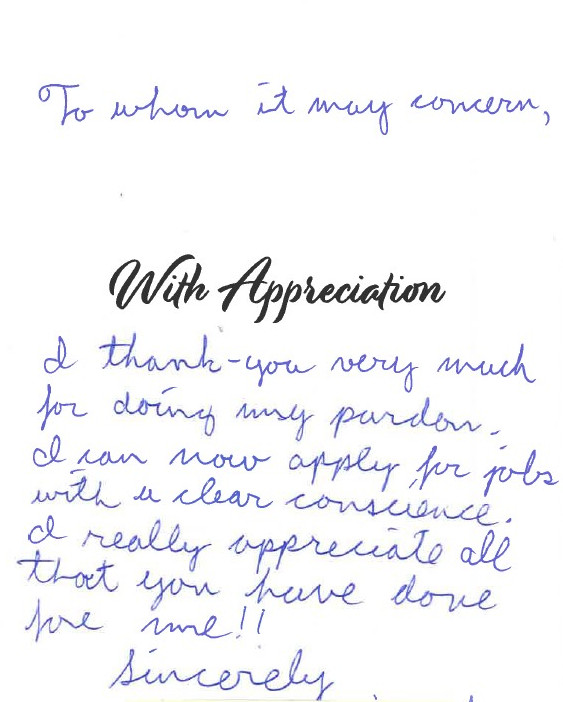 To whom it may concern,
With Appreciation
I thank-you very much
for doing my pardon.
I can now apply for jobs
with a clear conscience.
I really appreciate all
that you have done
for me!!
Sincerely